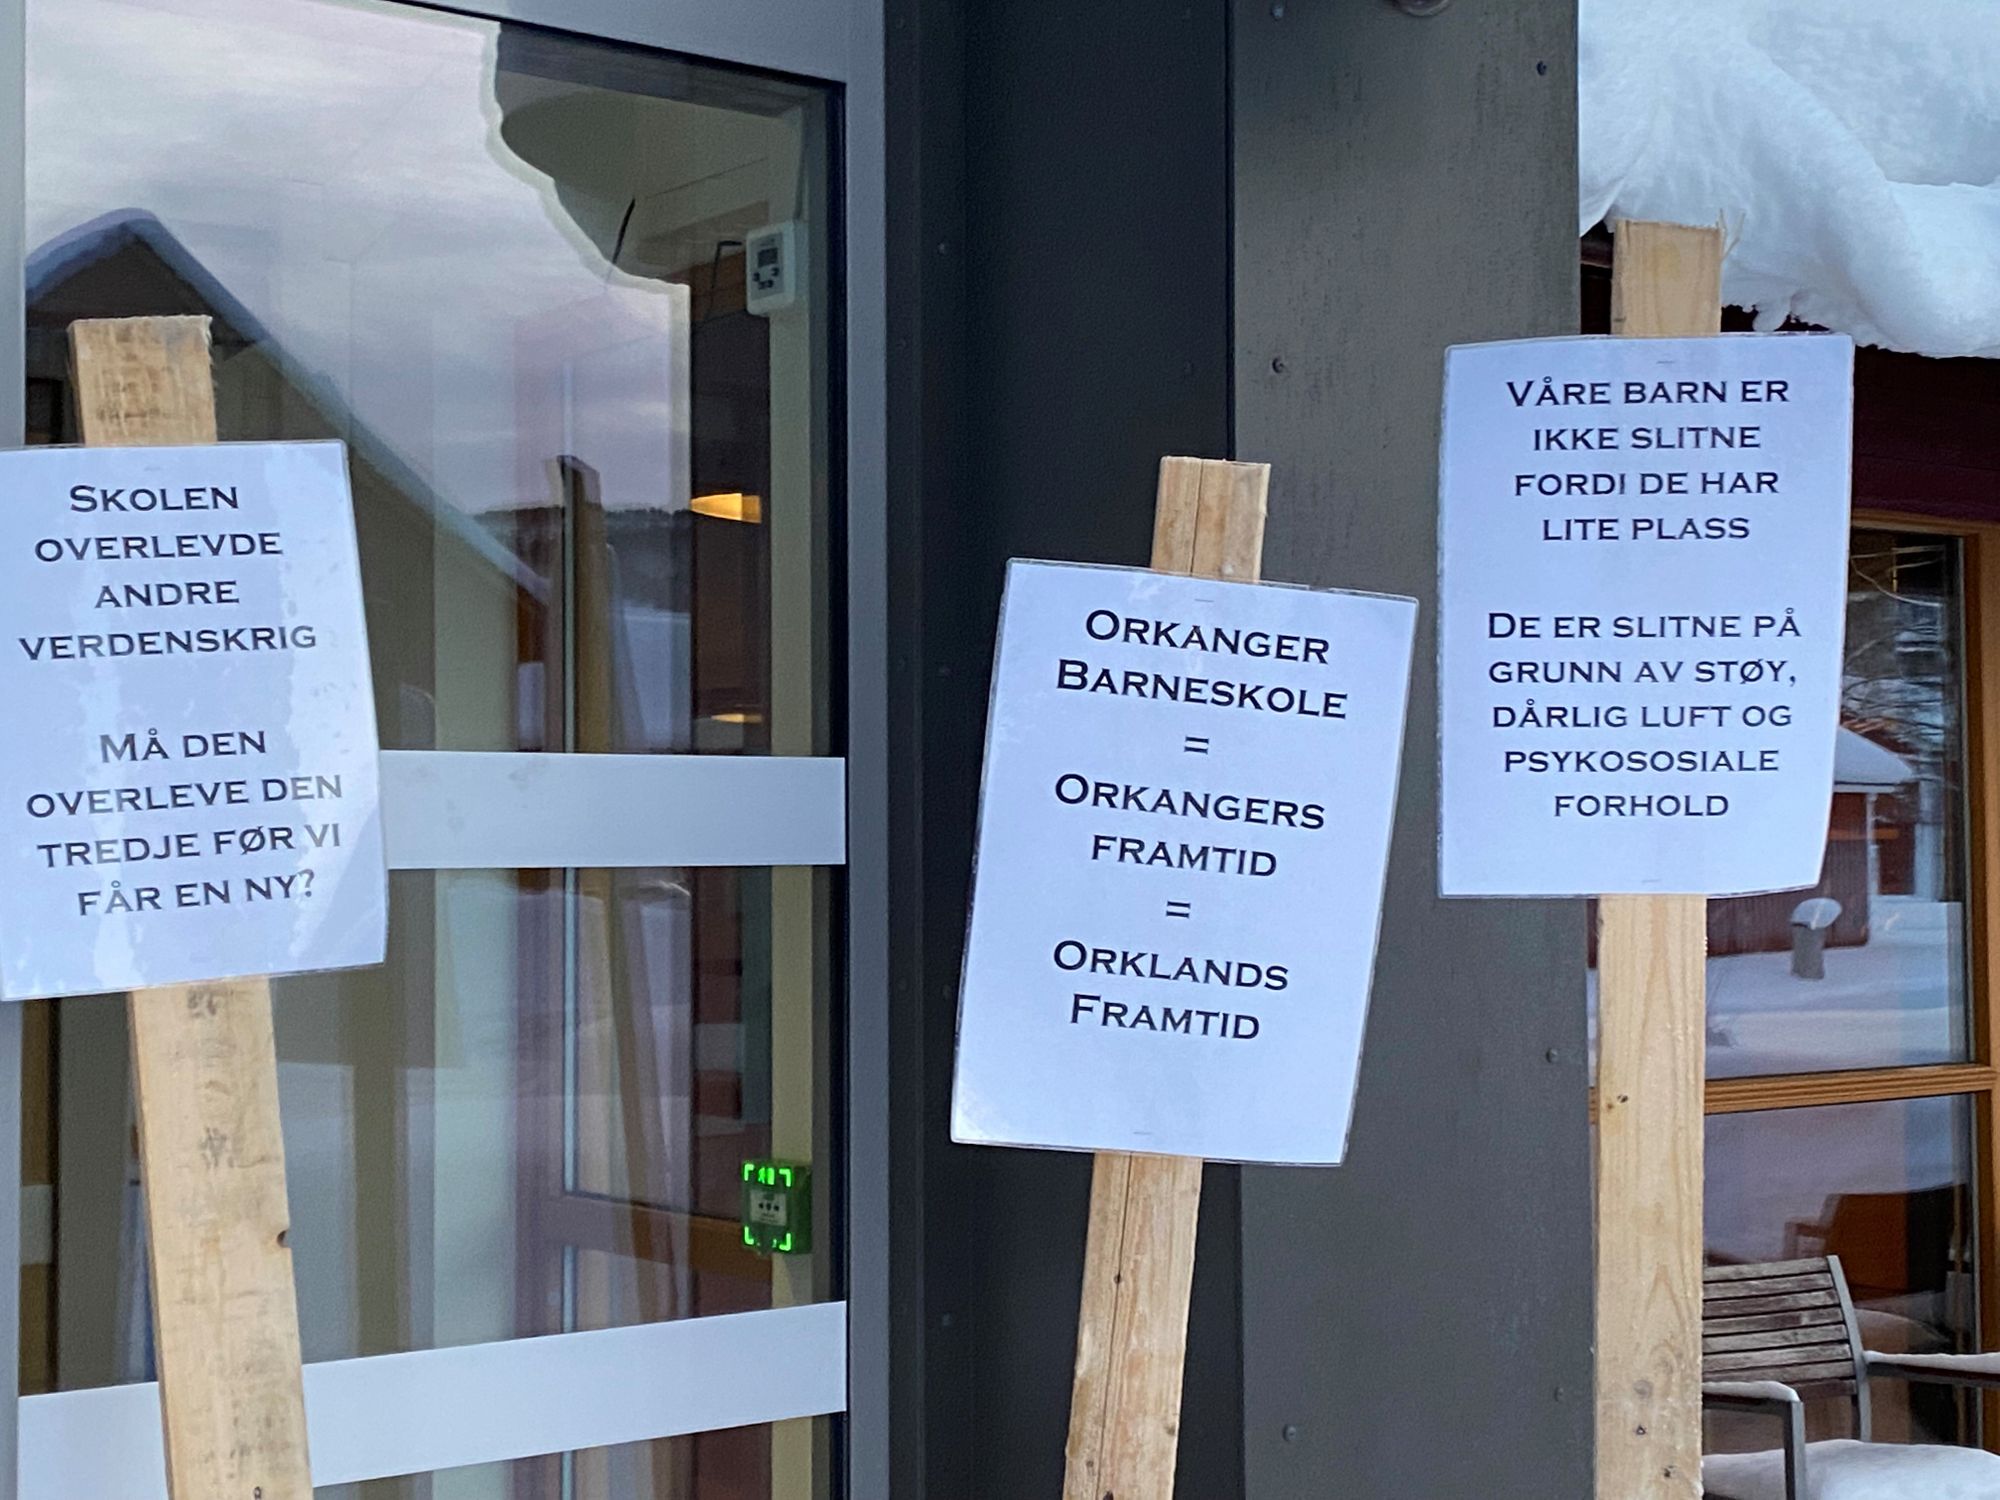 Skolen
overlevde
andre
verdenskrig
Må den
overleve den
tredje før vi
får en ny?
Orkanger
Barneskole
=
Orkangers
framtid
=
Orklands
Framtid
Våre barn er
ikke slitne
fordi de har
lite plass
De er slitne på
grunn av støy,
dårlig luft og
psykososiale
forhold